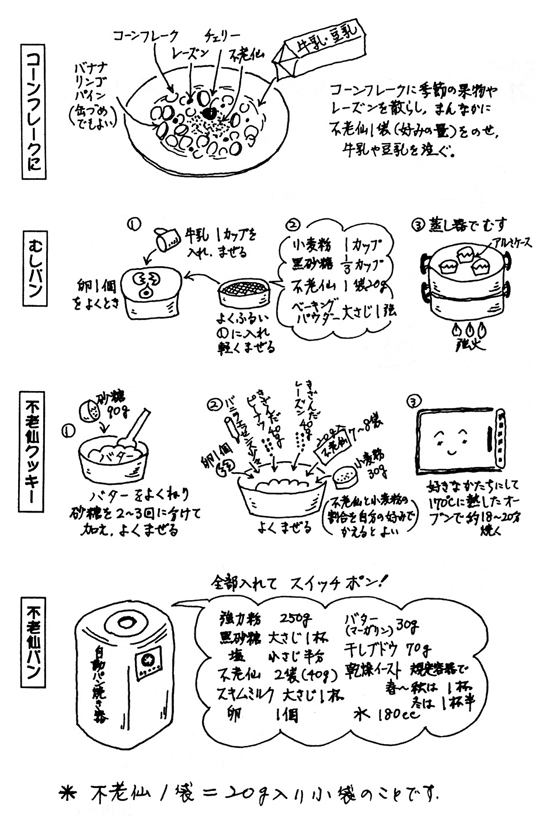 コーンフレークに
コーンフレーク
レーズン
チェリー
不老仙
牛乳・豆乳
バナナ
リンゴ
パイン
(缶づめ
でもよい)
コーンフレークに季節の果物や
レーズンを散らし、まんなかに
不老仙1袋(好みの量)をのせ、
牛乳や豆乳を注ぐ。
むしパン
①
牛乳1カップを
入れ、まぜる
卵1個
をよくとき
よくふるい
①に入れ
軽くまぜる
②
小麦粉 1カップ
黒砂糖 1/3カップ
不老仙 1袋20g
ベーキング
パウダー 大さじ1強
③蒸し器でむす
アルミケース
強火
不老仙クッキー
①
砂糖
90g
バター
バターをよくねり
砂糖を2〜3回に分けて
加え、よくまぜる
②
卵1個
バニラエッセンス
きざんだ
ピーナツ
40g
きざんだ
レーズン
40g
20g
不老仙
7〜8袋
小麦粉
30g
よくまぜる
(不老仙と小麦粉の
割合を自分の好みで
かえるとよい)
③
好きなかたちにして
170℃に熱したオー
ブンで約18〜20分
焼く
不老仙パン
全部入れて スイッチポン!
自動パン焼き器
強力粉 250g
黒砂糖 大さじ1杯
塩 小さじ半分
不老仙 2袋(40g)
スキムミルク 大さじ1杯
卵 1個
バター
(マーガリン) 30g
干しブドウ 70g
乾燥イースト 規定容器で
春〜秋は1杯
冬は1杯半
水 180cc
* 不老仙1袋=20g入り小袋のことです.